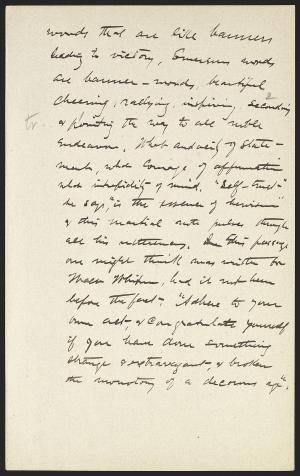 words that are like banners
leading to victory, Emersons words
are banner-words, beautiful,
cheering, rallying, inspiring, seconding
tr. & pointing the way to all noble
endeavor. What audacity of state-
ments, what courage of affirmation
what intrepidity of mind. "Self-trust"
he says, "is the essence of heroism"
& this martial note pulses through
all his utterances. This passage
one might think was written by
Walt Whitman, had it not been
before the fact - "Adhere to your
own act - & congratulate yourself
if you have done something
strange & extravagant, & broken
the monotony of a decorous age".